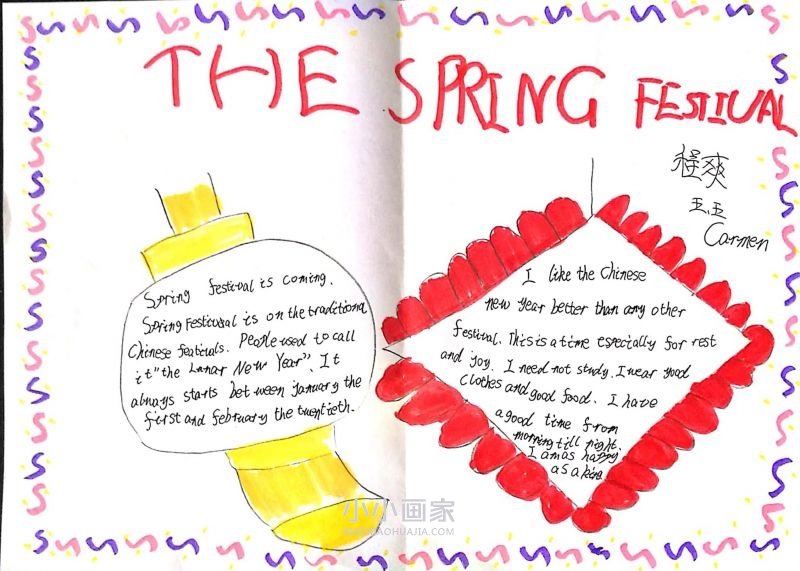 THE SPRING FESTIVAL
程爽
五.五
Carmen
Spring festival is coming.
Spring Festivval is on the traditional
Chinese feativals. People used to call
it "the Lunar New Year". It
always starts between january the
first and february the twentieth.
I like the Chinese
new year better than any other
festival. This is a time especially for rest
and joy. I need not study. I wear good
clothes and good food. I have
a good time from
morning till night.
I am as happy
as a king
小小画家
XIAOHUAJIA.COM